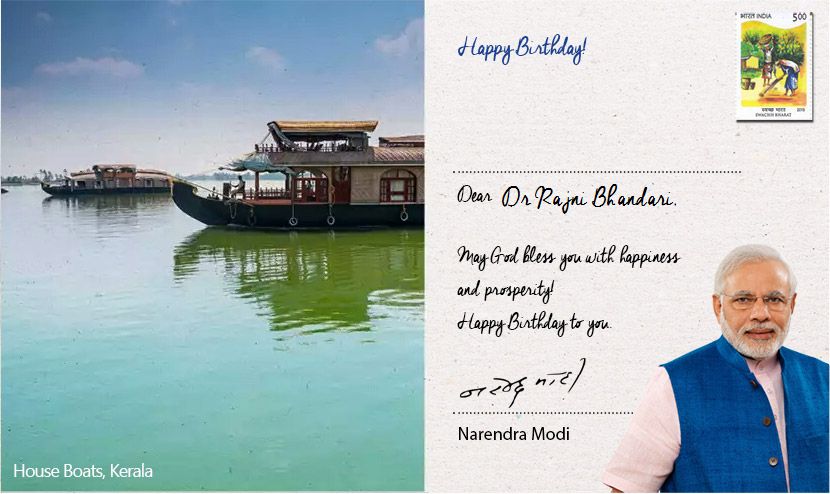 Happy Birthday!
भारत INDIA 500
स्वच्छ भारत 2015
SWACHH BHARAT
Dear Dr Rajni Bhandari.
May God bless you with happiness
and prosperity!
Happy Birthday to you.
नरेन्द्र मोदी
Narendra Modi
House Boats, Kerala